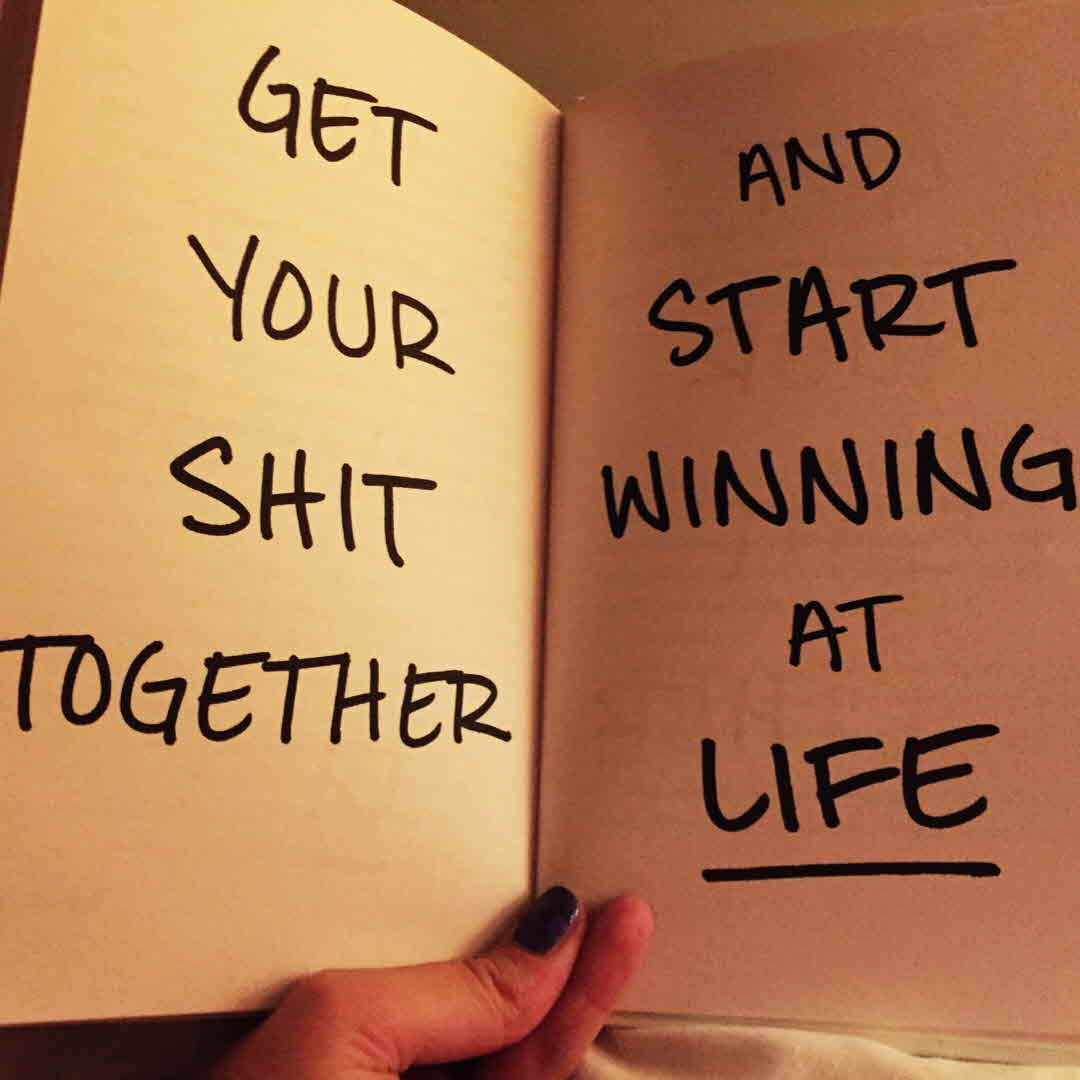 GET
YOUR
SHIT
TOGETHER
AND
START
WINNING
AT
LIFE